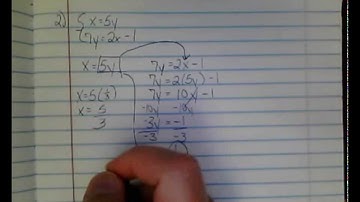 2) { x=5y
7y=2x-1
x=5y
7y=2x-1
7y=2(5y)-1
7y=10y-1
-10y -10y
-3y=-1
-3 -3
x=5(1/3)
x=5/3